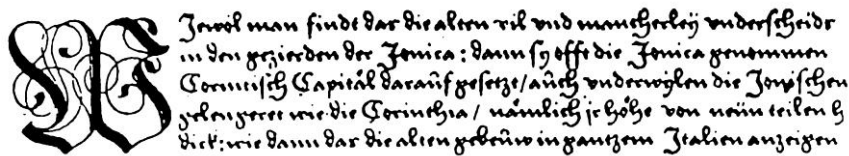 WJewol man findt das die alten vil vnd mancherleÿ vnderscheide
in den gezierden der Jonica: dann sy offt die Jonica genommen
Corintisch Capitäl daraûf gesetzt/ aûch vnderwÿlen die Jonischen
gelengeret wie die Corinthia/ nämlich jr höhe von neün teilen
dick: wie dann das die alten gebeûw in gantzem Jtalien anzeigen